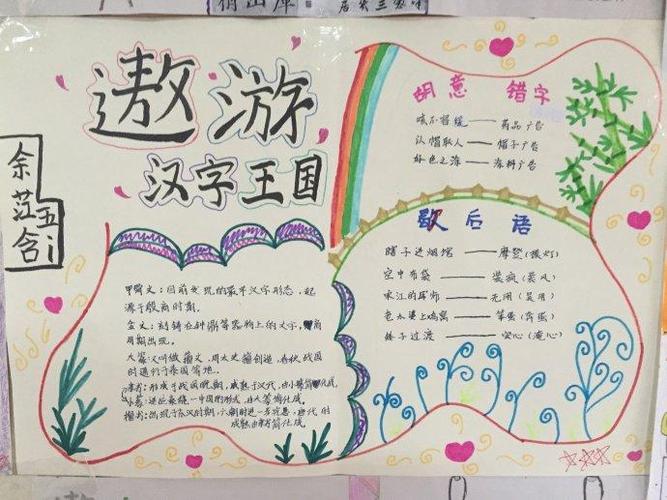 遨游
汉字王国
余茳含
五
甲骨文：目前发现的最早汉字形态，起
源于殷商时期。
金文：刻铸在钟鼎等器物上的文字，商
周期出现。
大篆又叫做籀文，周太史籀创造，春秋战国
时通行于秦国等地。
隶书：形成于战国晚期，成熟于汉代，由小篆简化成。
小篆：秦统一中国的形成，由大篆简化成。
楷书：出现于东汉时期，六朝时进一步完善，唐代时
成熟由隶书简化成。
胡意 错字
咳不容缓——药品广告
以帽取人——帽子广告
好色之涂——涂料广告
歇后语
瞎子进烟馆——摩登(摸灯)
空中布袋——装疯(装风)
宋江的军师——无用(吴用)
上鸡窝——笨蛋
子过渡——安心(淹心)